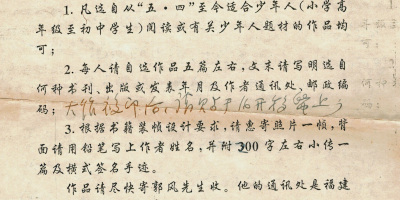 1. 凡选自从“五·四”至今适合少年人(小学高
年级至初中学生)阅读或有关少年人题材的作品均
可;
2. 每人请自选作品五篇左右,文末请写明选自
何种书刊、出版或发表年月及作者通讯处、邮政编
码;
3. 根据书籍装帧设计要求,请惠寄照片一帧,背
面请用铅笔写上作者姓名,并附300字左右小传一
篇及横式签名手迹。
作品请尽快寄郭风先生收。他的通讯处是福建